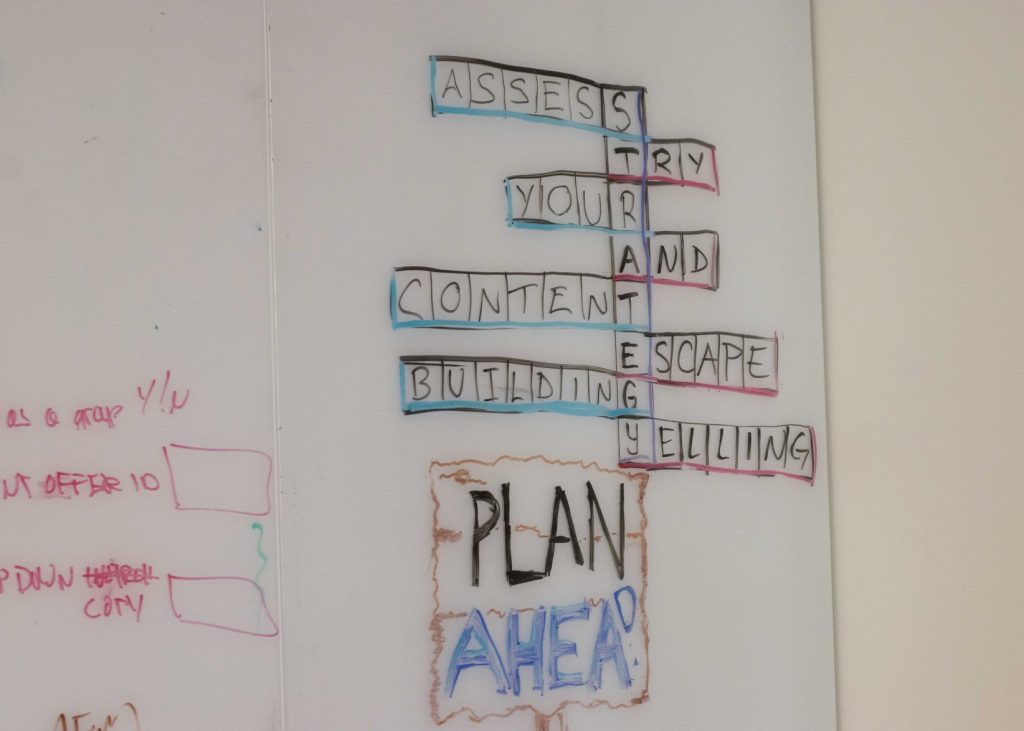 ASSESS
TRY
YOUR
AND
CONTENT
ESCAPE
BUILDING
YELLING
PLAN
AHEAD
as a group Y/N
NT OFFER ID
P DOWN
COPY